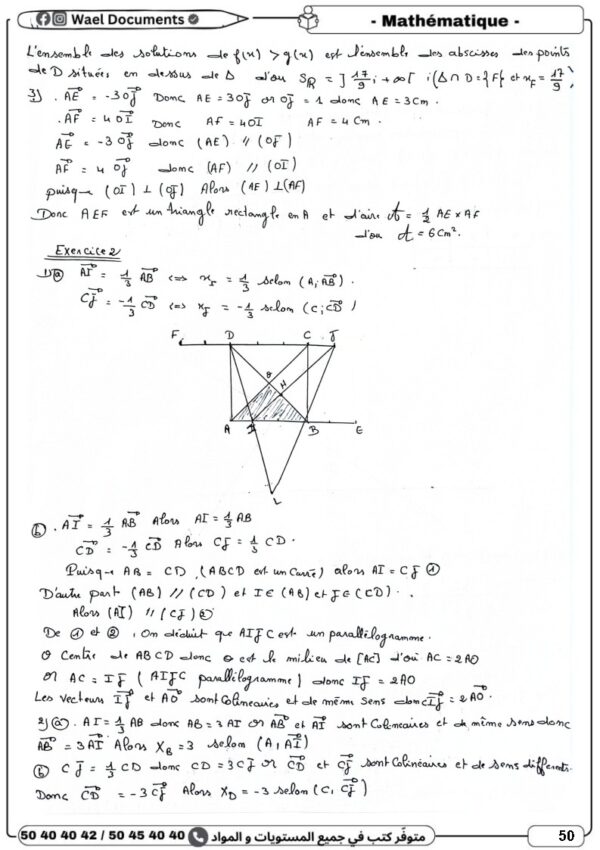 Wael Documents
- Mathématique -
L'ensemble des solutions de f(x) > g(x) est l'ensemble des abscisses des points
de D situées en dessus de Δ d'où Sℝ = ]17/9 ; +∞[ ; (Δ ∩ D = {F} et xF = 17/9)
3) . AE⃗ = -3 OJ⃗ Donc AE = 3OJ or OJ = 1 donc AE = 3Cm.
. AF⃗ = 4 OI⃗ Donc AF = 4OI AF = 4Cm.
AE⃗ = -3 OJ⃗ donc (AE) // (OJ)
AF⃗ = 4 OJ⃗ donc (AF) // (OI)
puisque (OI) ⊥ (OJ) Alors (AE) ⊥ (AF)
Donc AEF est un triangle rectangle en A et d'aire A = 1/2 AE × AF
d'où A = 6Cm².
Exercice 2
1) a) AI⃗ = 1/3 AB⃗ ⟺ xI = 1/3 selon (A, AB⃗).
CJ⃗ = -1/3 CD⃗ ⟺ xJ = -1/3 selon (C, CD⃗)
F D C J
O
H
A I B E
L
b) . AI⃗ = 1/3 AB⃗ Alors AI = 1/3 AB
CD⃗ = -1/3 CD⃗ Alors CJ = 1/3 CD.
Puisque AB = CD, (ABCD est un Carré) alors AI = CJ ①
D'autre part (AB) // (CD) et I ∈ (AB) et J ∈ (CD).
Alors (AI) // (CJ) ②
De ① et ②, On déduit que AIJC est un parallélogramme.
O Centre de ABCD donc O est le milieu de [AC] d'où AC = 2AO
or AC = IJ (AIJC parallélogramme) donc IJ = 2AO
Les vecteurs IJ⃗ et AO⃗ sont Colineaires et de même Sens donc IJ⃗ = 2AO⃗.
2) a) . AI = 1/3 AB donc AB = 3 AI or AB⃗ et AI⃗ sont Colineaires et de même sens donc
AB⃗ = 3AI⃗ Alors XB = 3 selon (A, AI⃗)
b) CJ = 1/3 CD donc CD = 3CJ or CD⃗ et CJ⃗ sont Colinéaires et de sens differents.
Donc CD⃗ = -3 CJ⃗ Alors XD = -3 selon (C, CJ⃗)
50 40 40 42 / 50 45 40 40
متوفّر كتب في جميع المستويات و المواد
50